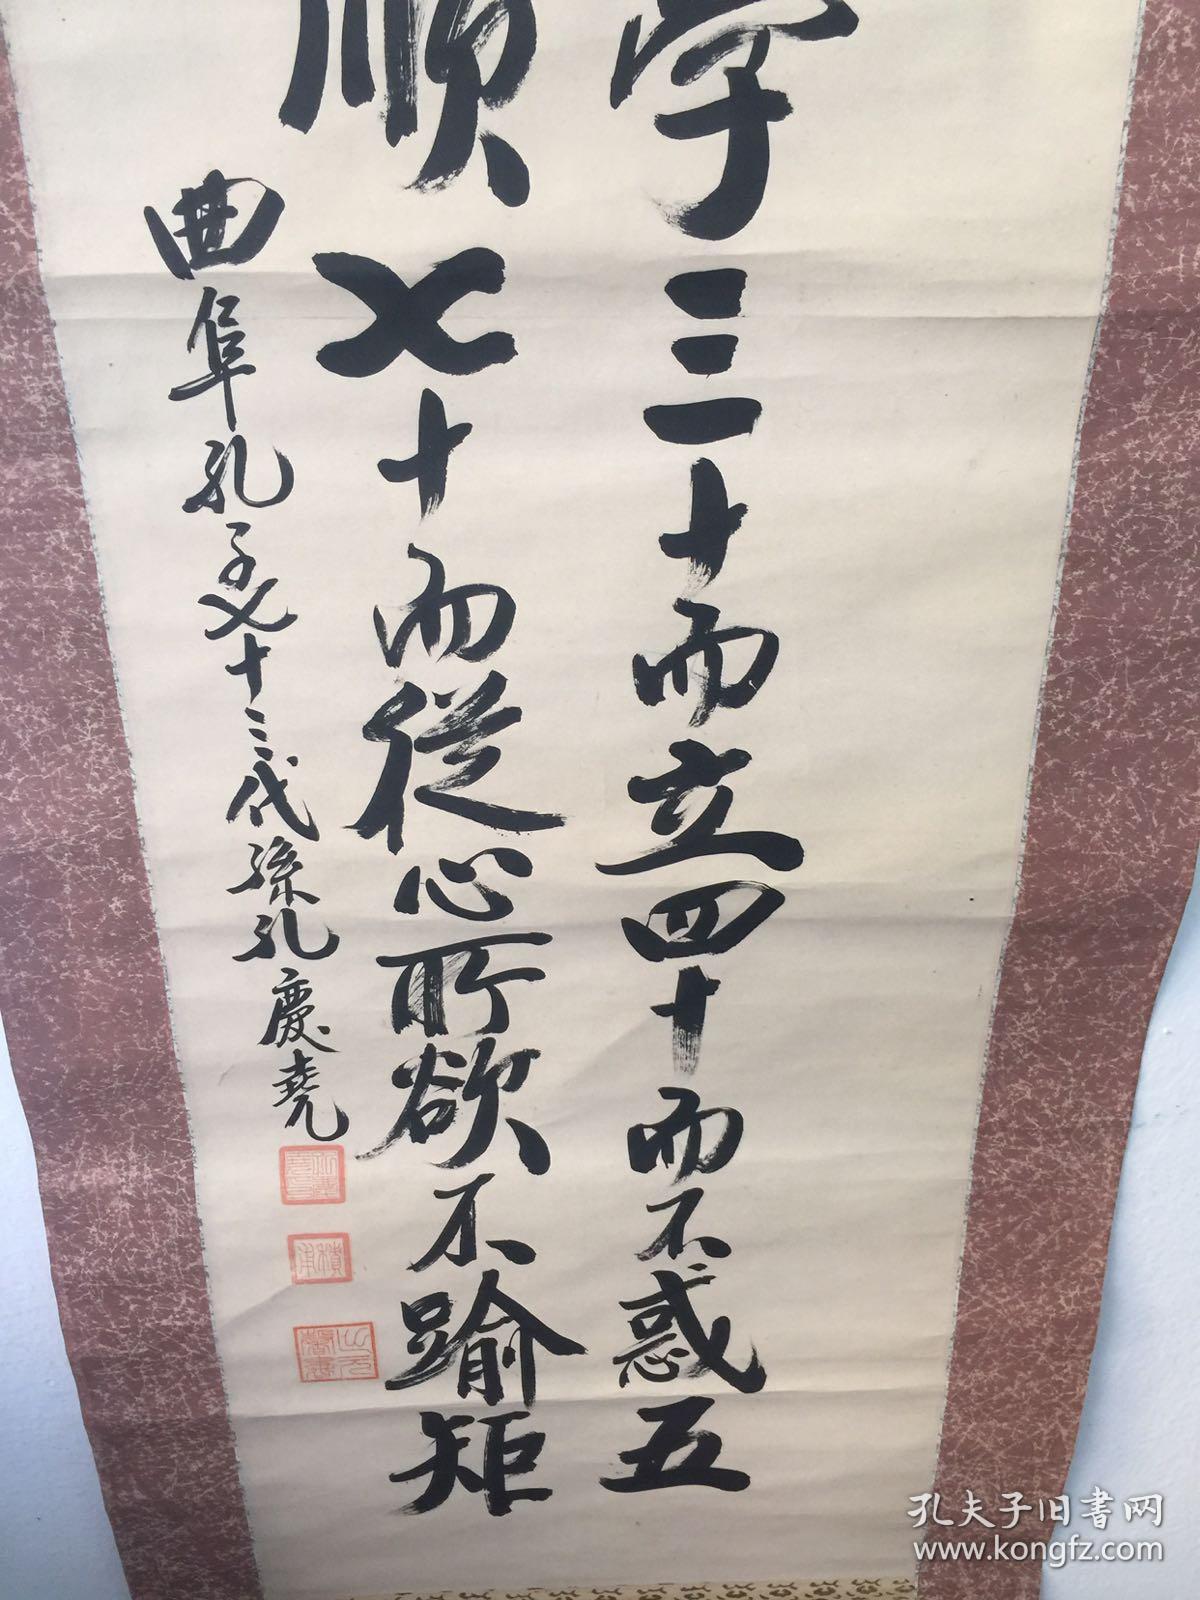 学三十而立四十而不惑五
順七十而從心所欲不踰矩
曲阜孔子七十三代孫孔慶堯
孔夫子旧書网
www.kongfz.com